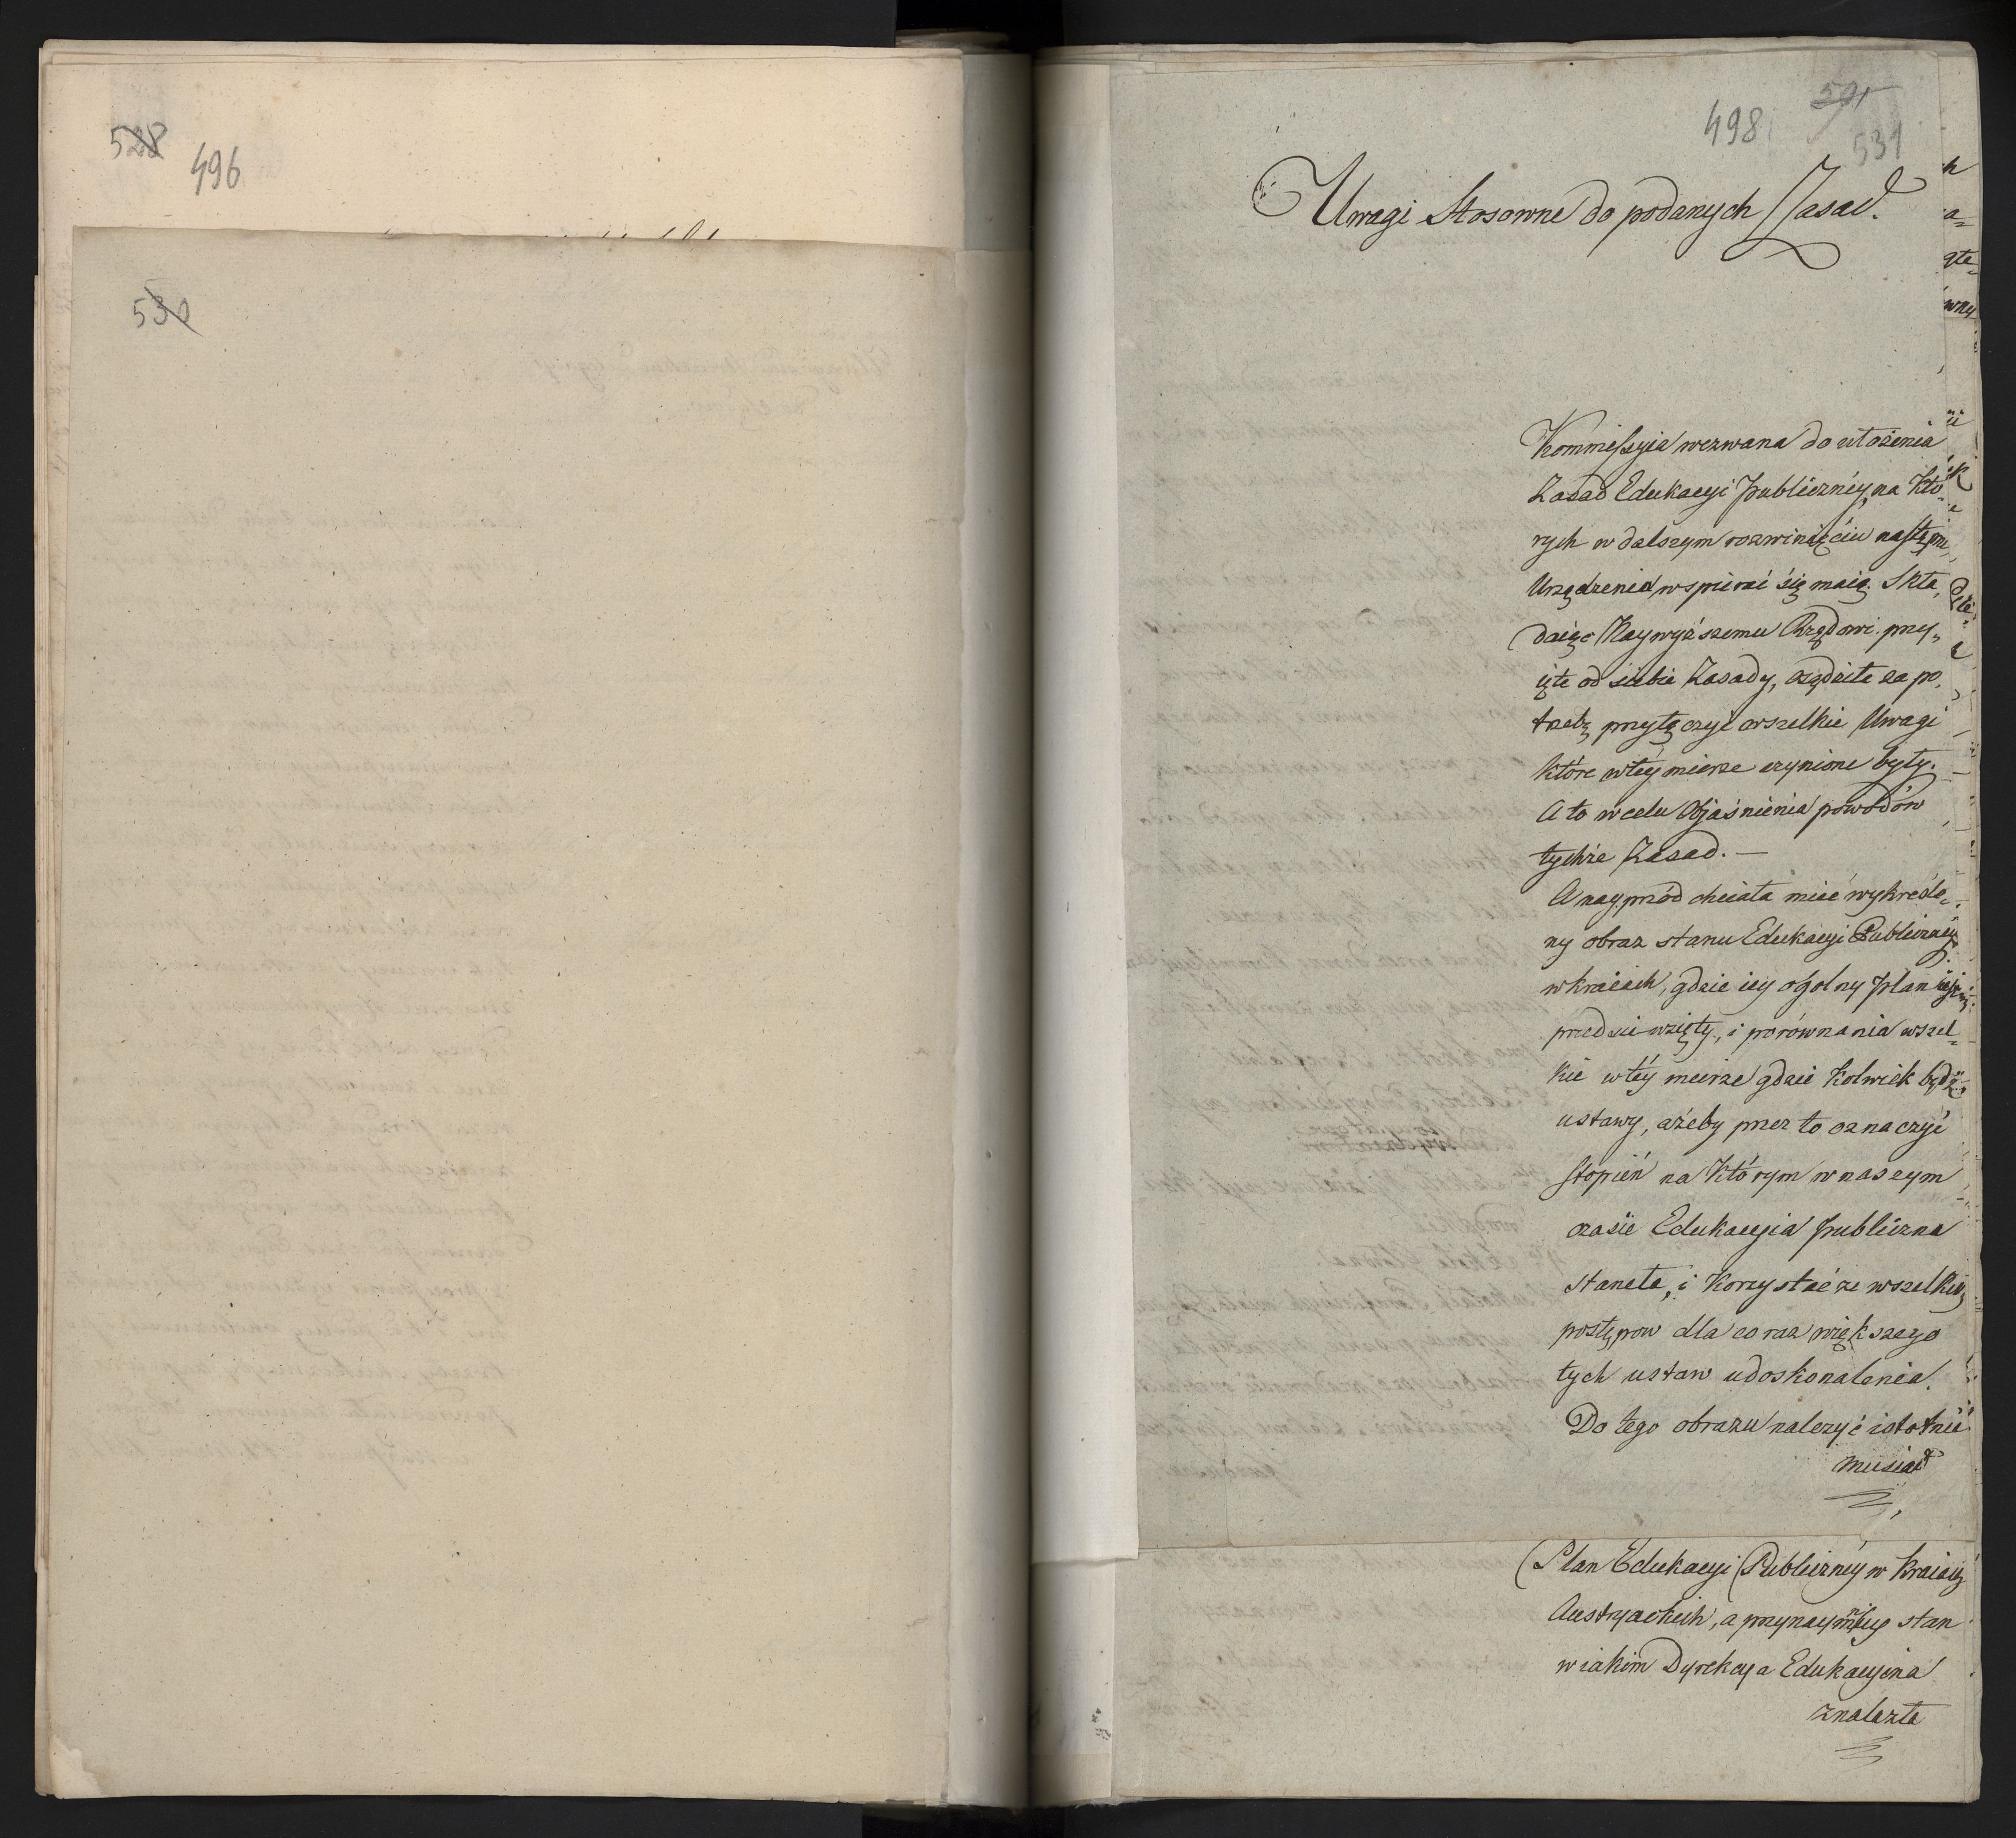 528
496
530
498
591
531
Uwagi Stosowne do podanych Zasad.
Kommissyia wezwana do ułożenia
Zasad Edukacyi publiczney, na któ
rych w dalszym rozwinięciu następne
Urządzenia wspierać się maią. Skła,
daiąc Naywyższemu Rządowi przy„
ięte od siebie Zasady, osądziła za po,
trzebę przyłączyć wszelkie Uwagi
które wtey mierze czynione były.
A to w celu Objaśnienia powodów
tychże Zasad. —
A nayprzód chciała mieć wykreśle„
ny obraz stanu Edukacyi Publiczney
w kraiach, gdzie iey ogolny plan
przedsiewzięty, i porównania wszel„
kie wtéy mierze gdzie kolwiek bądź
ustawy, ażeby przez to oznaczyć
stopień na którym w naszym
czasie Edukacyia publiczna
stanęła, i korzystać ze wszelkich
postępow dla coraz większego
tych ustaw udoskonalenia.
Do tego obrazu należyć istotnie
musiał
Plan Edukacyi Publiczney w kraiach
Austryackich, a przynaymniey stan
w iakim Dyrekcya Edukacyina
znalazła